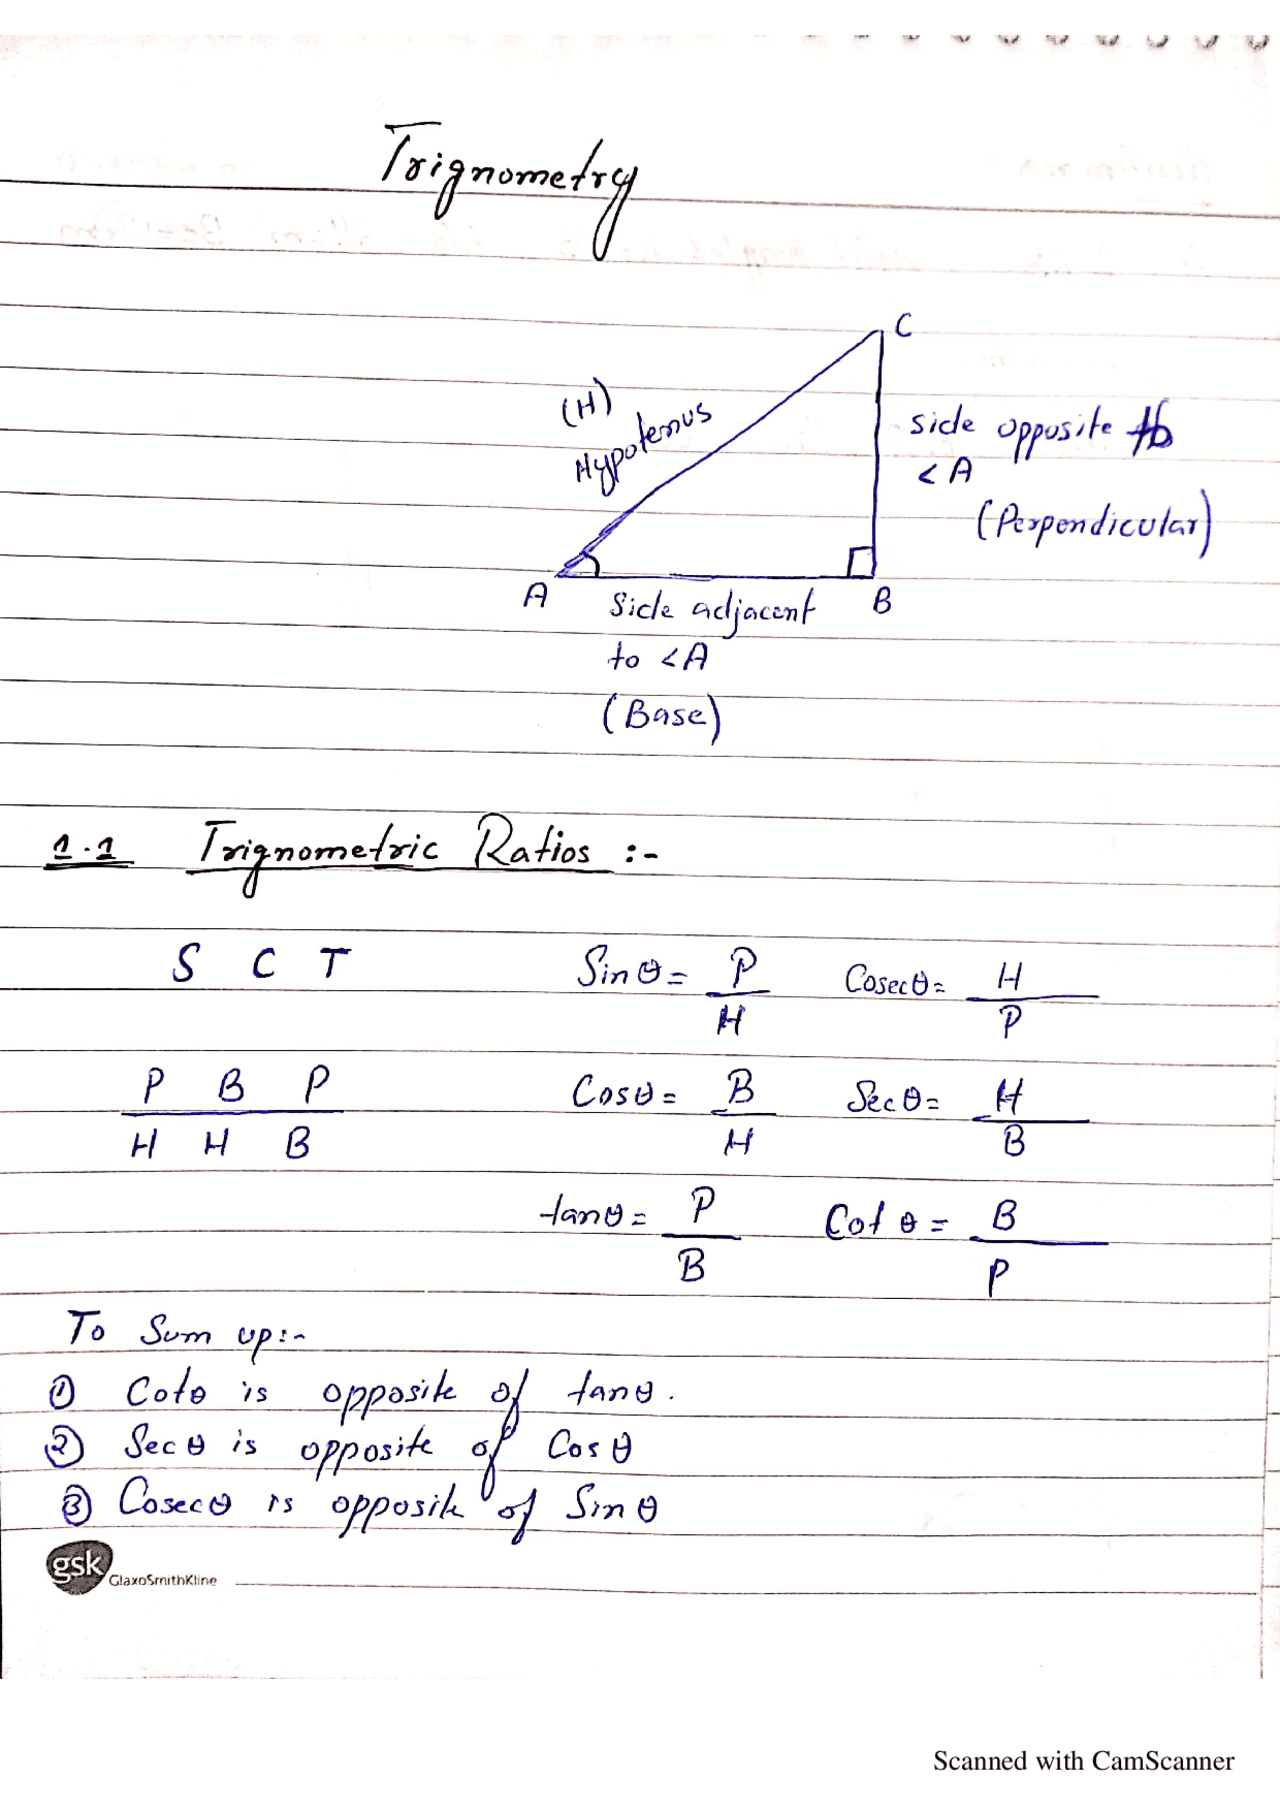 Trignometry
C
(H)
Hypotenus
side opposite to
<A
(Perpendicular)
A
B
Side adjacent
to <A
(Base)
1.1 Trignometric Ratios :-
S C T
Sinθ = P/H Cosecθ = H/P
P B P
H H B
Cosθ = B/H Secθ = H/B
tanθ = P/B Cot θ = B/P
To Sum up:-
① Cotθ is opposite of tanθ.
② Secθ is opposite of Cosθ
③ Cosecθ is opposite of Sinθ
gsk GlaxoSmithKline
Scanned with CamScanner